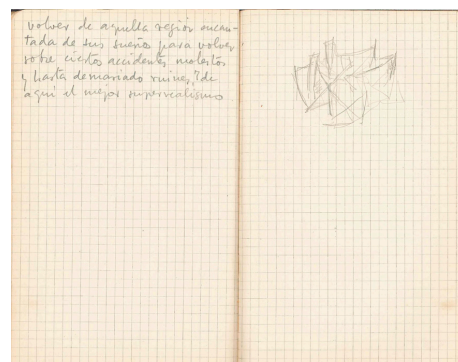 volver de aquella región encan-
tada de sus sueños para volver
sobre ciertos accidentes molestos
y hasta demasiado ruines, ? de
aquí el mejor superrealismo